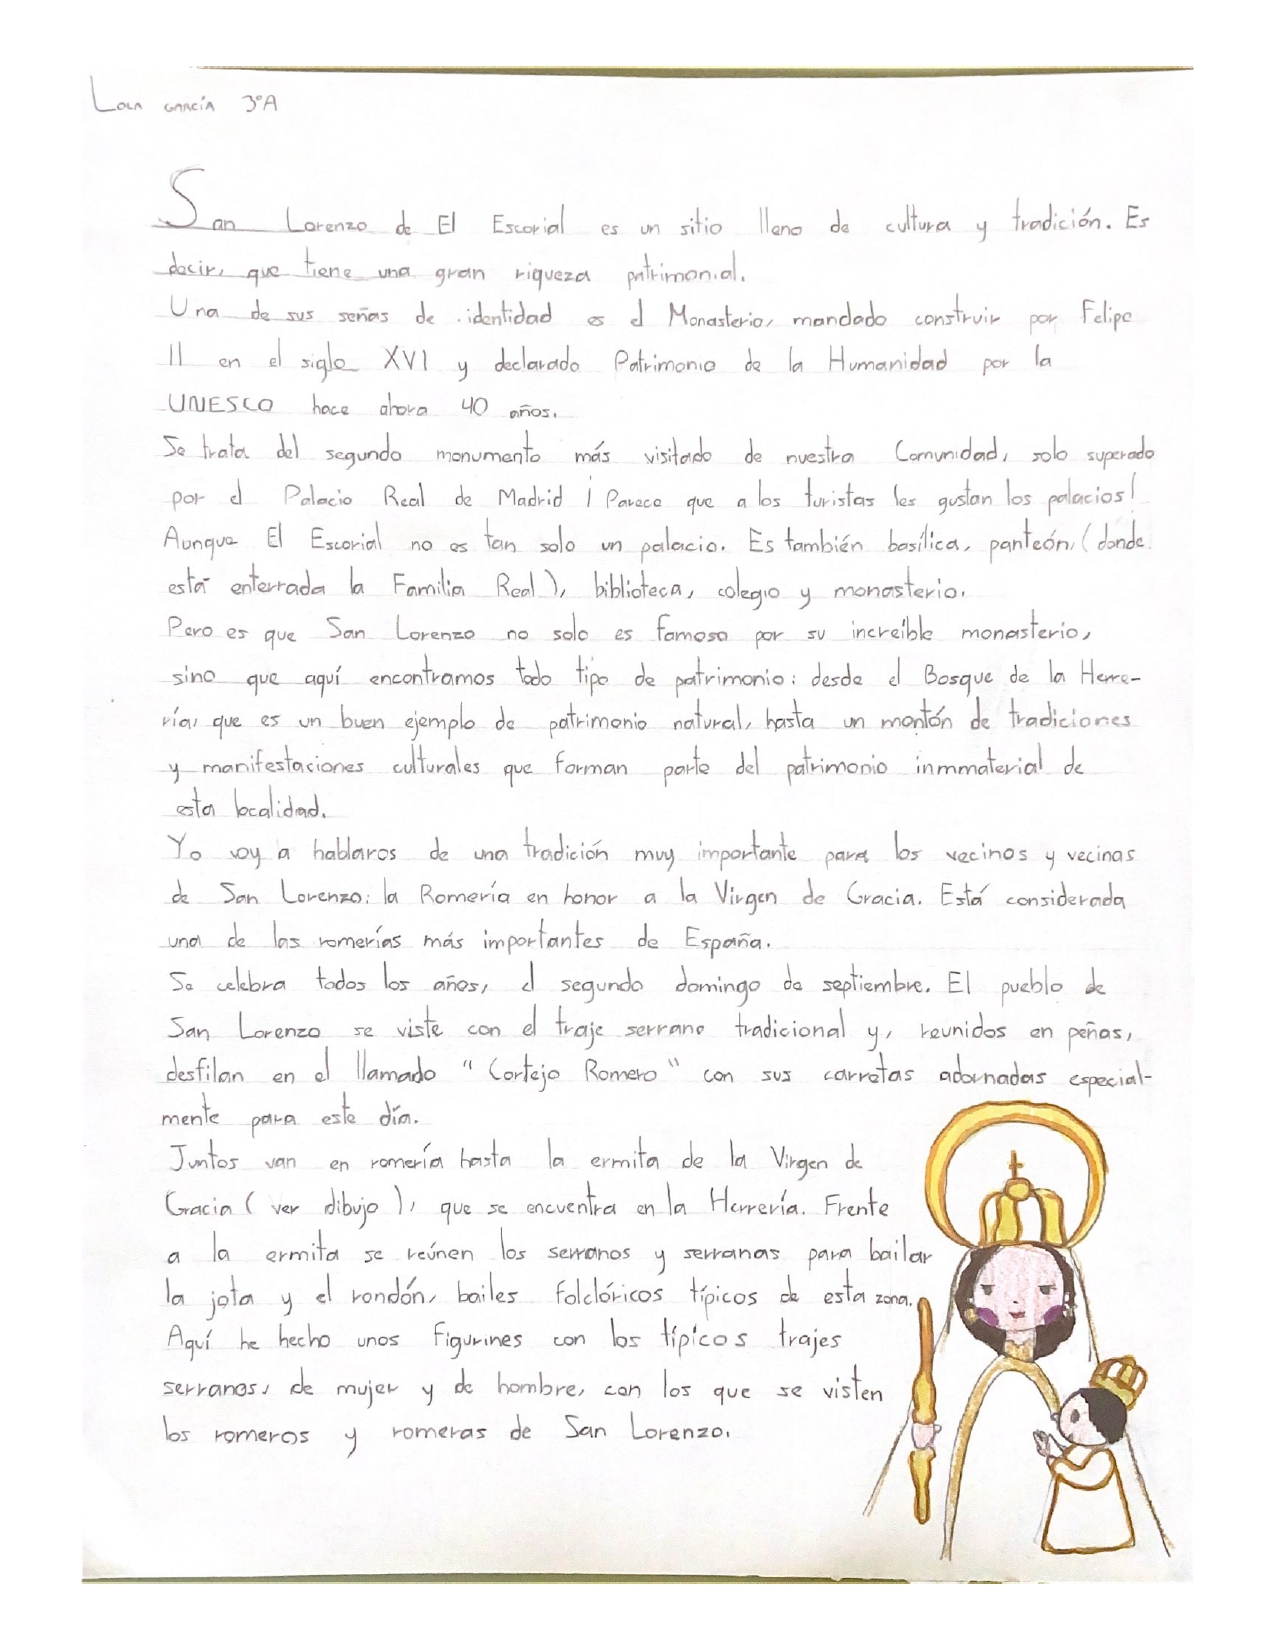 Lola García 3ºA
San Lorenzo de El Escorial es un sitio lleno de cultura y tradición. Es
decir, que tiene una gran riqueza patrimonial.
Una de sus señas de identidad es el Monasterio, mandado construir por Felipe
II en el siglo XVI y declarado Patrimonio de la Humanidad por la
UNESCO hace ahora 40 años.
Se trata del segundo monumento más visitado de nuestra Comunidad, solo superado
por el Palacio Real de Madrid ¡Parece que a los turistas les gustan los palacios!
Aunque El Escorial no es tan solo un palacio. Es también basílica, panteón, (donde
está enterrada la Familia Real), biblioteca, colegio y monasterio.
Pero es que San Lorenzo no solo es famoso por su increíble monasterio,
sino que aquí encontramos todo tipo de patrimonio: desde el Bosque de la Herre-
ría, que es un buen ejemplo de patrimonio natural, hasta un montón de tradiciones
y manifestaciones culturales que forman parte del patrimonio inmmaterial de
esta localidad.
Yo voy a hablaros de una tradición muy importante para los vecinos y vecinas
de San Lorenzo: la Romería en honor a la Virgen de Gracia. Está considerada
una de las romerías más importantes de España.
Se celebra todos los años, el segundo domingo de septiembre. El pueblo de
San Lorenzo se viste con el traje serrano tradicional y, reunidos en peñas,
desfilan en el llamado "Cortejo Romero" con sus carretas adornadas especial-
mente para este día.
Juntos van en romería hasta la ermita de la Virgen de
Gracia (ver dibujo), que se encuentra en la Herrería. Frente
a la ermita se reúnen los serranos y serranas para bailar
la jota y el rondón, bailes folclóricos típicos de esta zona.
Aquí he hecho unos figurines con los típicos trajes
serranos, de mujer y de hombre, con los que se visten
los romeros y romeras de San Lorenzo.